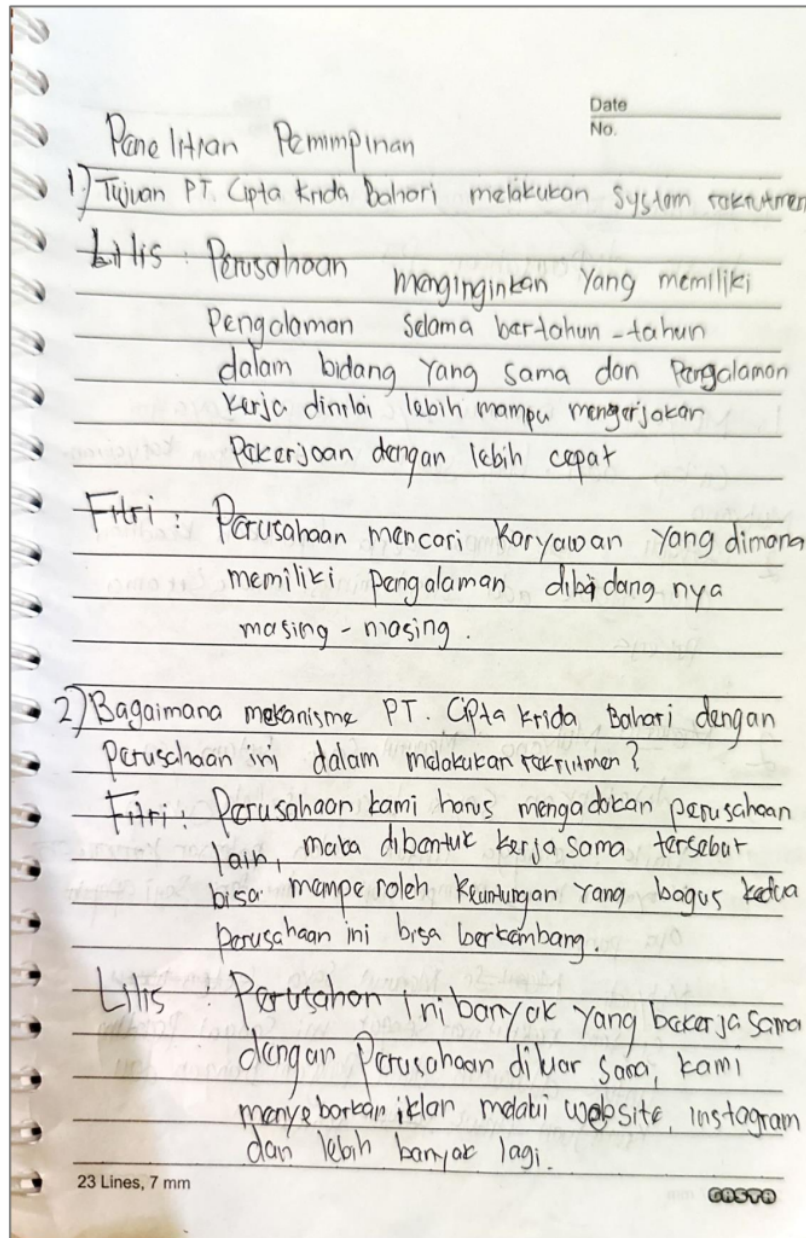 Date
No.
Penelitian Pemimpinan
1.) Tujuan PT. Cipta Krida Bahari melakukan system rekrutmen
Lilis : Perusahaan menginginkan yang memiliki
Pengalaman selama bertahun-tahun
dalam bidang yang sama dan Pengalaman
kerja dinilai lebih mampu mengerjakan
Pekerjaan dengan lebih cepat
Fitri : Perusahaan mencari karyawan yang dimana
memiliki pengalaman dibidang nya
masing-masing.
2) Bagaimana mekanisme PT. Cipta Krida Bahari dengan
perusahaan ini dalam melakukan rekrutmen?
Fitri : Perusahaan kami harus mengadakan perusahaan
lain, maka dibentuk kerja sama tersebut
bisa memperoleh keuntungan yang bagus kedua
perusahaan ini bisa berkembang.
Lilis : Perusahan ini banyak yang bekerja sama
dengan Perusahaan diluar sana, kami
menyebarkan iklan melalui website, instagram
dan lebih banyak lagi.
23 Lines, 7 mm
GASTA